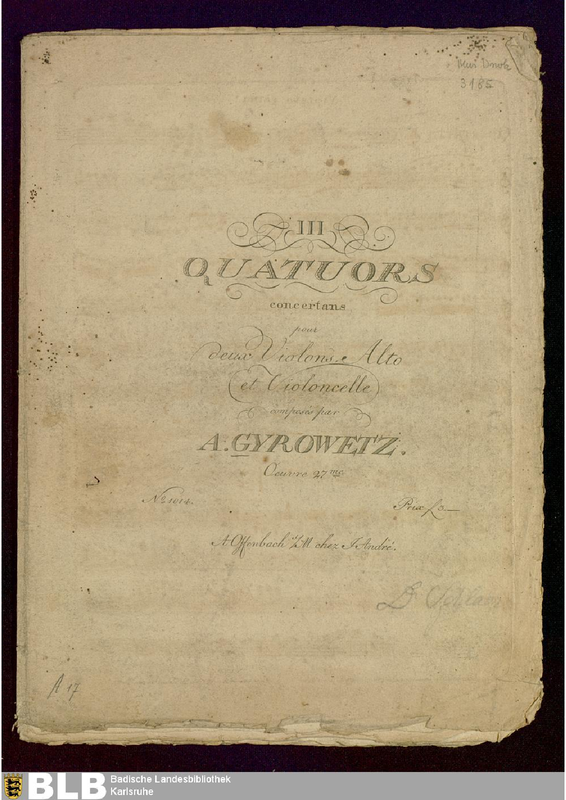 Mus. Druck
3185
III
QUATUORS
concertans
pour
deux Violons, Alto
et Violoncelle
composés par
A. GYROWETZ.
Oeuvre 27me
No 1014.
Prix f 3
A Offenbach s/M chez J. André.
A 17
BLB
Badische Landesbibliothek
Karlsruhe